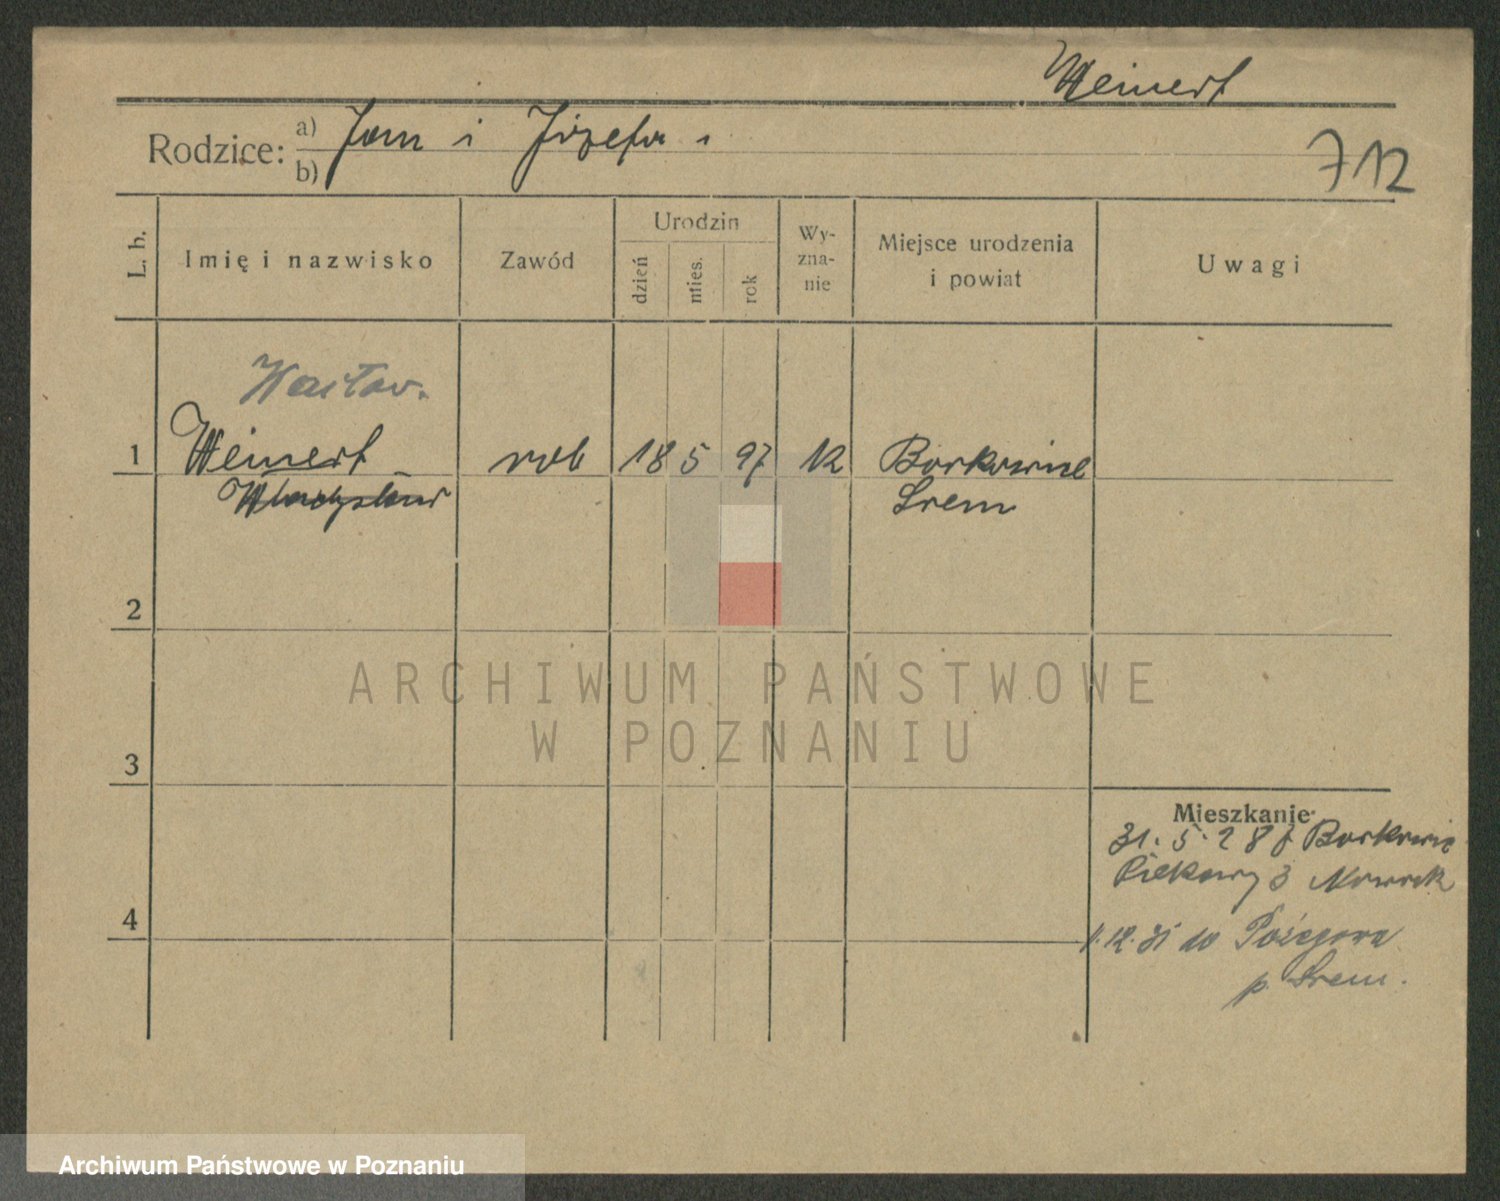 Weinert
Rodzice: a) Jan i Józefa
b)
712
L. b.
Imię i nazwisko
Zawód
Urodzin
dzień
mies.
rok
Wy-
zna-
nie
Miejsce urodzenia
i powiat
Uwagi
Wacław.
1 Weinert rob 18 5 97 k Borkowice
Władysław Śrem
2
3
4
Mieszkanie
31. 5. 28 z Borkowic
Piekary 3 Nowak
1.12.31 do Pożegowa
p. Śrem.
ARCHIWUM PAŃSTWOWE
W POZNANIU
Archiwum Państwowe w Poznaniu